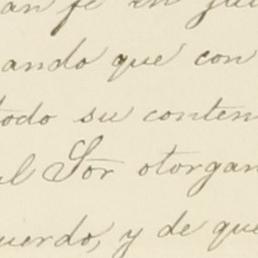 an fe en jui
ando que con
todo su conten
al Sor otorgan
uerdo, y de que